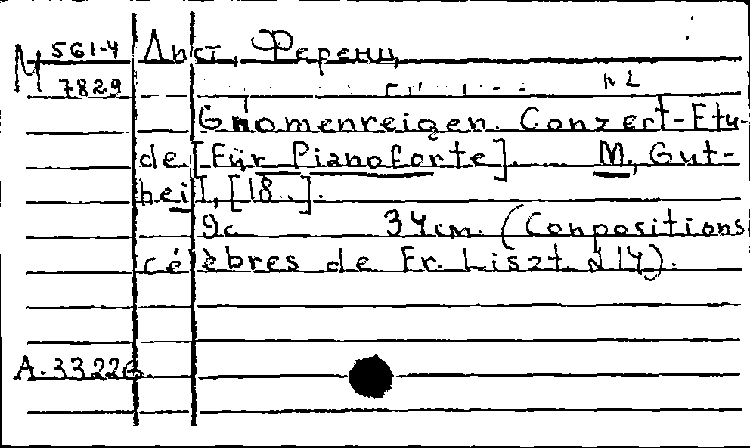 М 561-4 Лист, Ференц
7829
Gnomenreigen. Conzert-Etu-
de [für Pianoforte]. M., Gut-
heil, [18 .].
9c 34cm. (Conpositions
célèbres de Fr. Liszt. №14).
A.33226